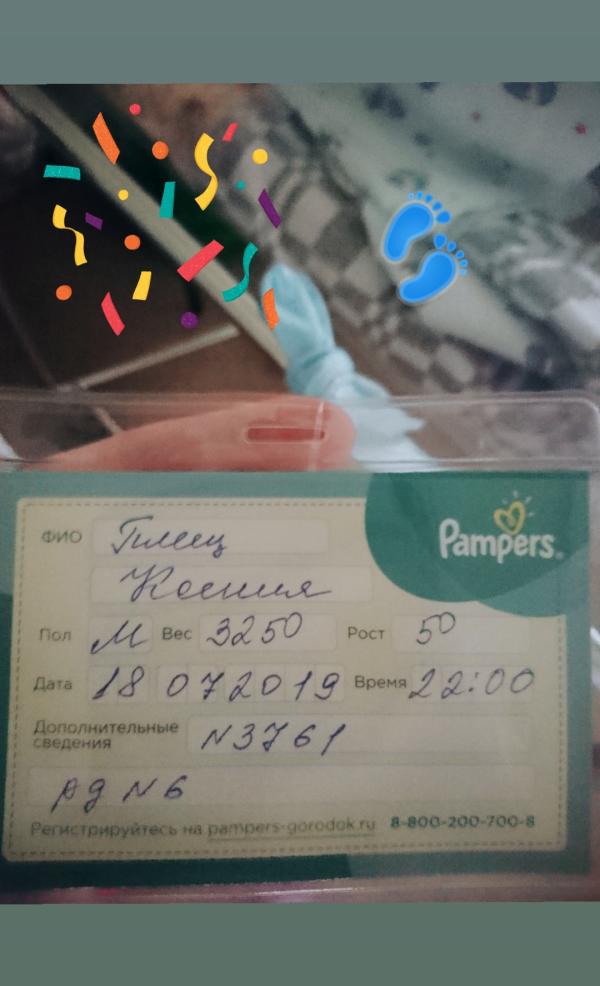 Pampers
ФИО
Ксения
Пол М Вес 3250 Рост 50
Дата 18 07 2019 Время 22:00
Дополнительные сведения N3761
рд N 6
Регистрируйтесь на pampers-gorodok.ru 8-800-200-700-8